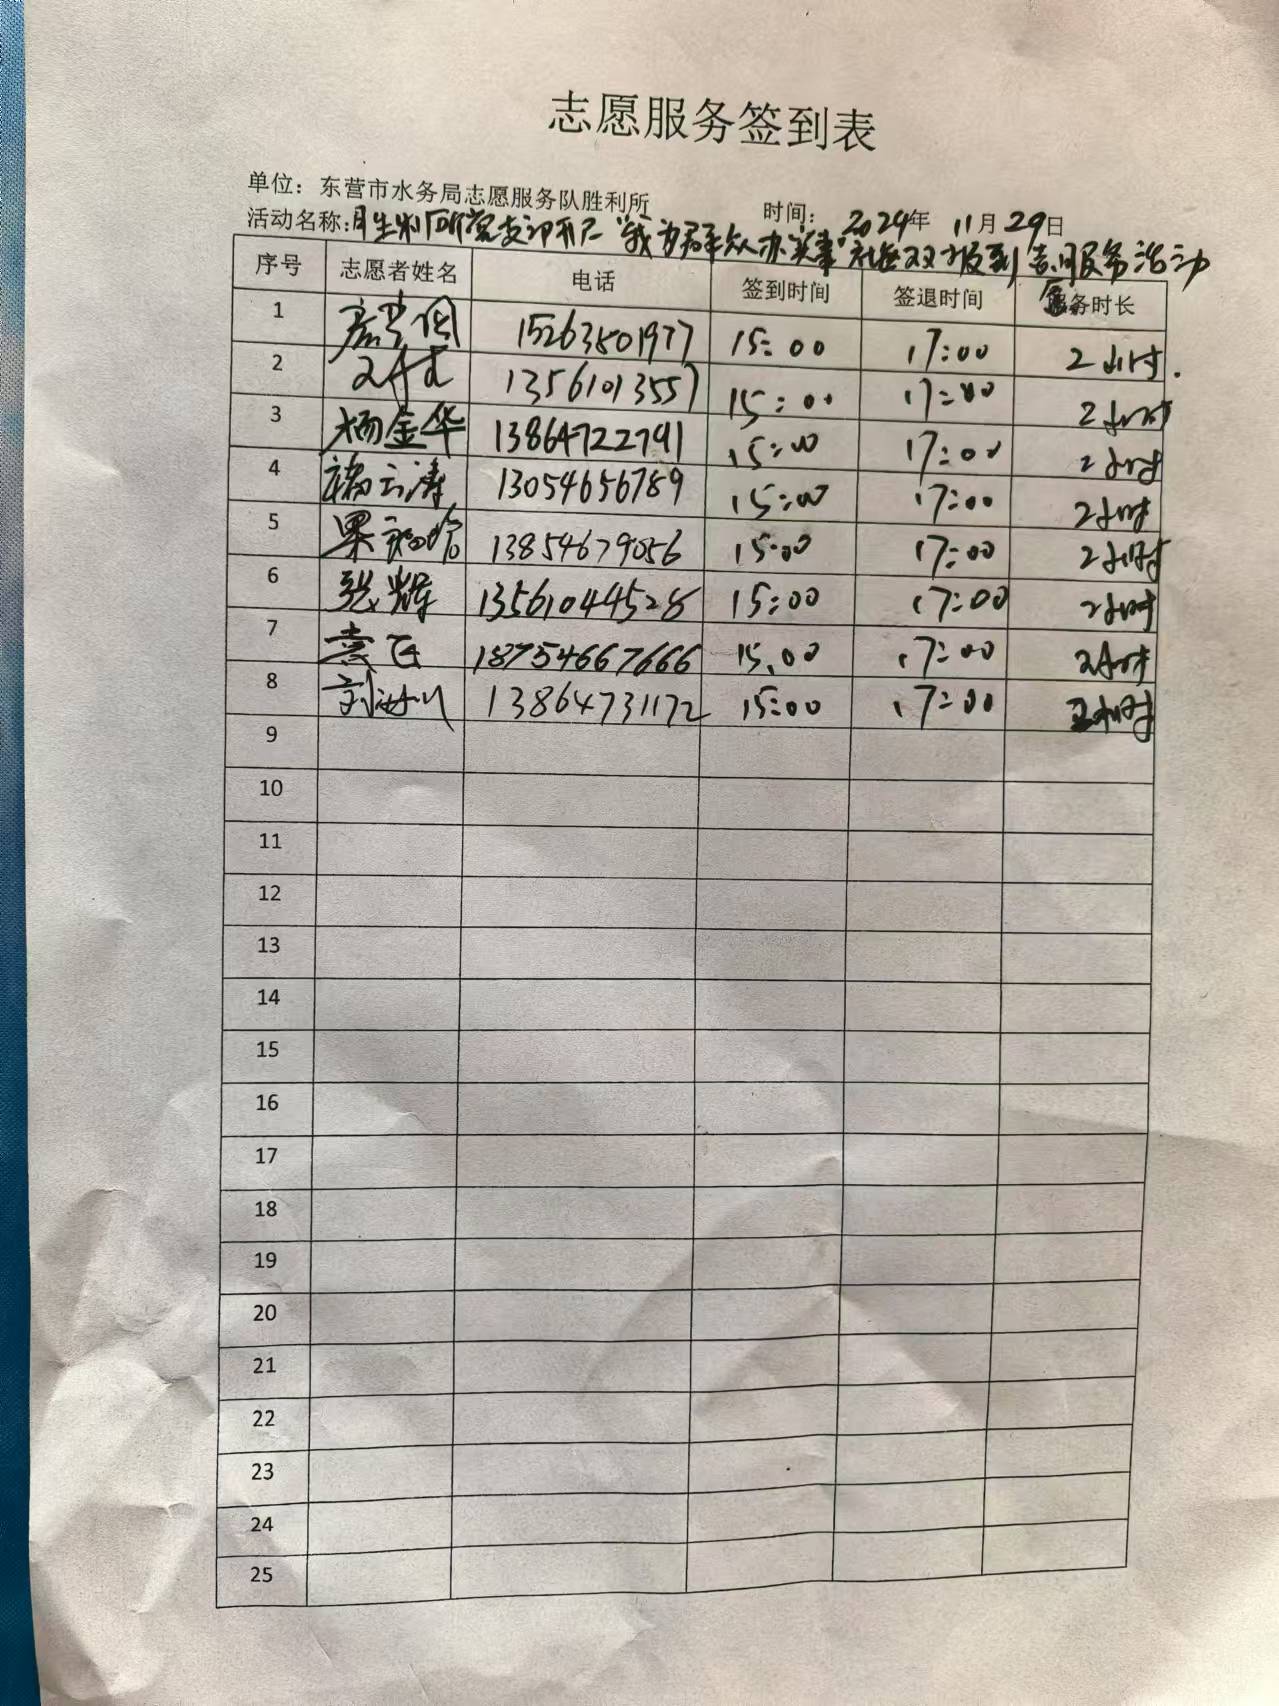 志愿服务签到表
单位：东营市水务局志愿服务队胜利所
时间：2024年 11月29日
活动名称：胜利所党支部开展“我为群众办实事”社区双报到志愿服务活动
序号 志愿者姓名 电话 签到时间 签退时间 服务时长
1 15263801977 15:00 17:00 2小时.
2 13561013557 15:00 17:00 2小时
3 杨金华 13864722791 15:00 17:00 2小时
4 云涛 13054656789 15:00 17:00 2小时
5 13854679056 15:00 17:00 2小时
6 张辉 13561044528 15:00 17:00 2小时
7 袁飞 18754667666 15:00 17:00 2小时
8 刘海川 13864731172 15:00 17:00 2小时
9
10
11
12
13
14
15
16
17
18
19
20
21
22
23
24
25